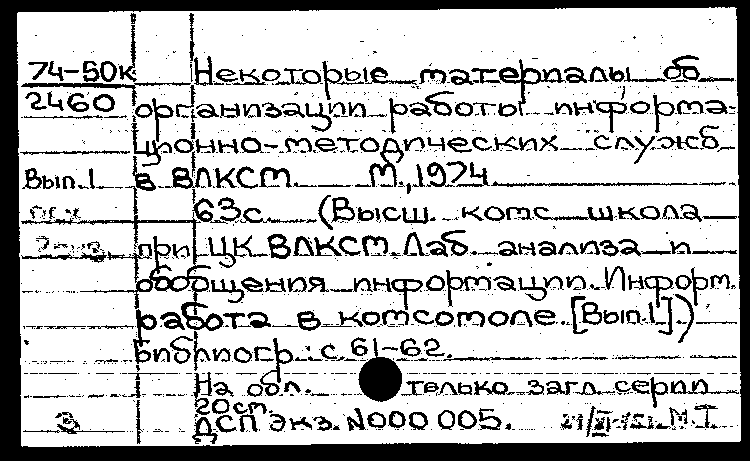 74-50к Некоторые материалы об
2460 организации работы информа-
ционно-методических служб
Вып.1 в ВЛКСМ. М., 1974.
63с. (Высш. комс школа
при ЦК ВЛКСМ. Лаб. анализа и
обобщения информации. Информ.
работа в комсомоле. [Вып.1].)
Библиогр.: с 61-62.
На обл. только загл. серии
20см.
ДСП Экз. N000 005. М.Т.